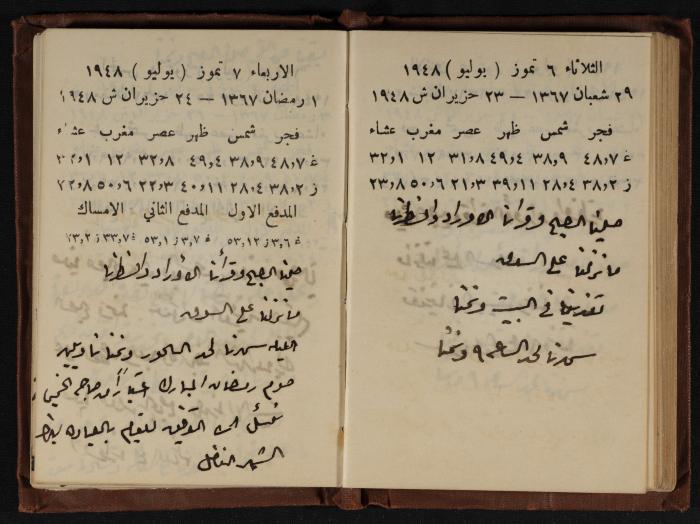 الثلاثاء ٦ تموز ( يوليو ) ١٩٤٨
٢٩ شعبان ١٣٦٧ — ٢٣ حزيران ش ١٩٤٨
فجر شمس ظهر عصر مغرب عشاء
غ ٧٫٤٨ ٩٫٣٨ ٤٫٤٩ ٨٫٣١ ١٢ ١٫٣٢
ز ٢٫٣٨ ٤٫٢٨ ١١٫٣٩ ٣٫٢١ ٦٫٥٠ ٨٫٢٣
صلينا الصبح وقرأنا الاوراد وافطرنا
ما نزلنا على السوق
تغدينا في البيت ونمنا
سهرنا لحد الساعة ٩ ونمنا
الاربعاء ٧ تموز ( يوليو ) ١٩٤٨
١ رمضان ١٣٦٧ — ٢٤ حزيران ش ١٩٤٨
فجر شمس ظهر عصر مغرب عشاء
غ ٧٫٤٨ ٩٫٣٨ ٤٫٤٩ ٨٫٣٢ ١٢ ١٫
ز ٢٫٣٨ ٤٫٢٨ ١١٫٤٠ ٣٫٢٢ ٦٫٥٠ ٨٫٢٢
المدفع الاول المدفع الثاني الامساك
غ ٦٫٣ ز ١٢٫٥٣ غ ٧٫٣ ز ١٫٥٣ غ ٧٫٣٣ ز ٢٫٢٣
صلينا الصبح وقرأنا الأوراد وافطرنا
ما نزلنا على السوق
الليله سهرنا لحد السحور ونمنا ناويين
صوم رمضان المبارك
نسئل الله التوفيق للقيام بالعباده بهذا
الشهر الفاضل